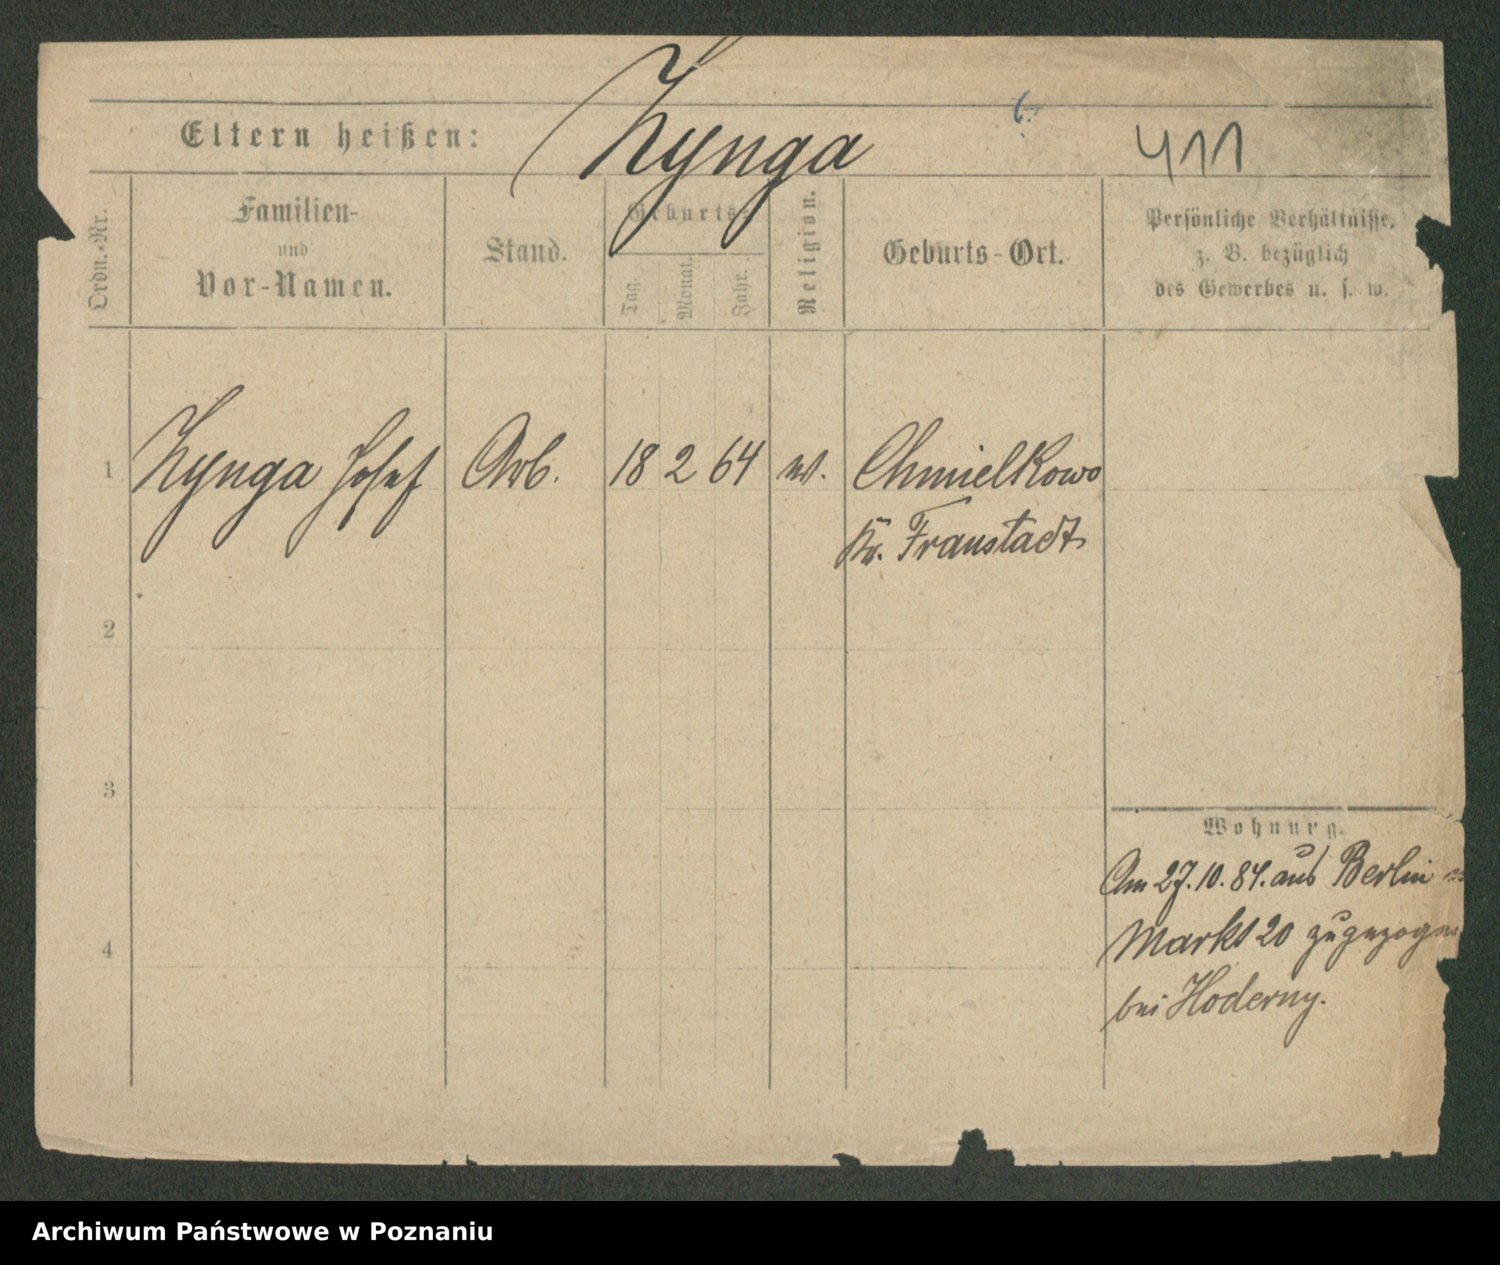 Eltern heißen: Zynga 6. 411
Ordn.-Nr.
Familien-
und
Vor-Namen.
Stand.
Geburts-
Tag.
Monat.
Jahr.
Religion.
Geburts-Ort.
Persönliche Verhältnisse,
z. B. bezüglich
des Gewerbes u. s. w.
1 Zynga Josef Arb. 18 2 64 Chmielkowo
Kr. Fraustadt
2
3
Wohnung.
Am 27.10.84. aus Berlin
Markt 20 zugezogen
4
bei Hoderny.
Archiwum Państwowe w Poznaniu